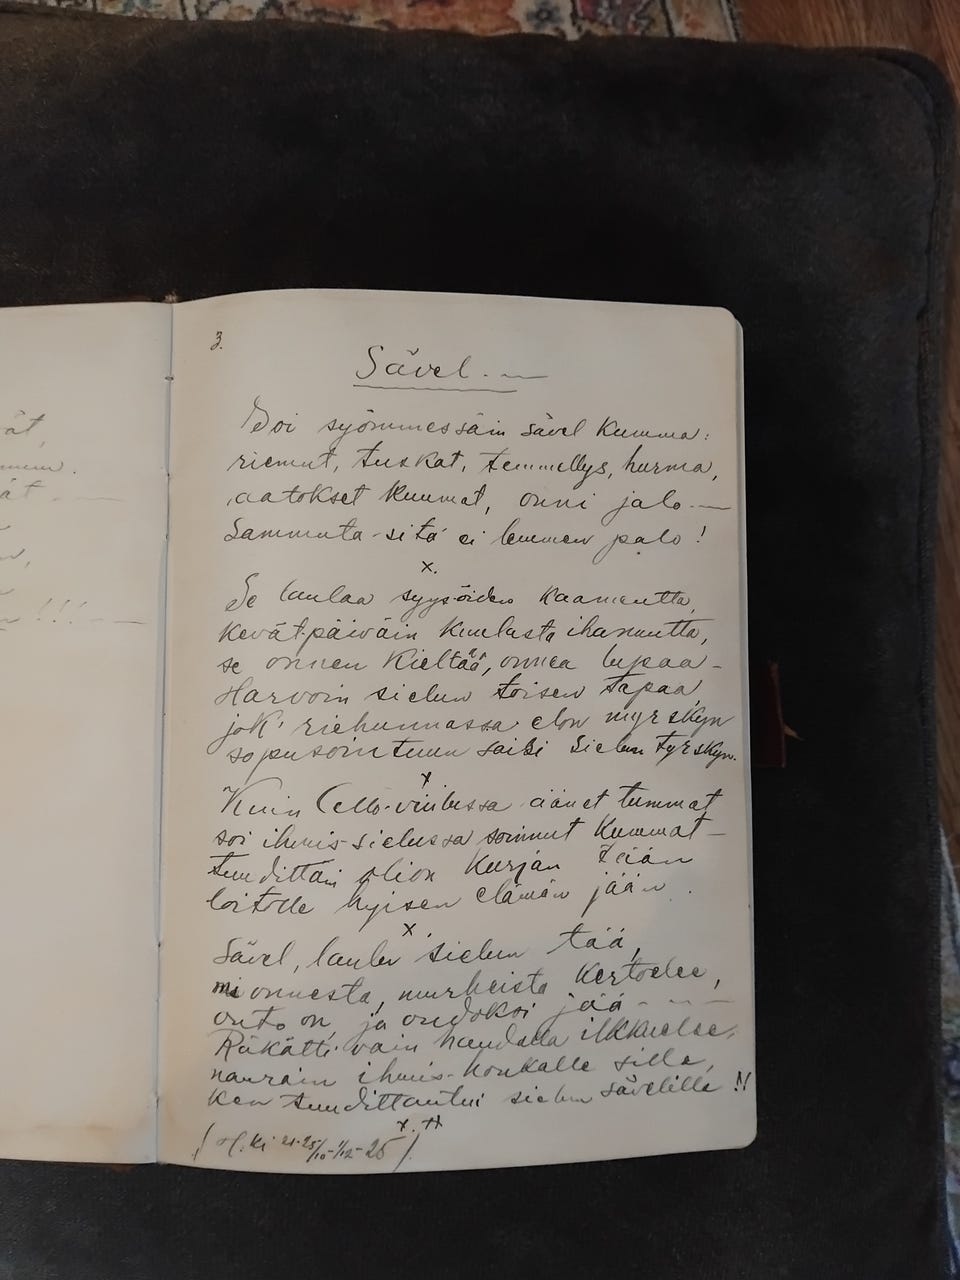 ät,
ät - — —
!!! — —
3.
Sävel. -—
Soi syömmessäin sävel kumma:
riemut, tuskat, temmellys, hurma,
aatokset kuumat, onni jalo -—
Sammuta-sitä ei lemmen palo!
x.
Se laulaa syys-öiden kaameutta,
kevät-päiväin kuulasta ihanuutta,
se onnen kieltää, onnea lupaa -
Harvoin sielun toisen tapaa
jok' riehunnassa elon myrskyn
sopusointuun saisi sielun tyrskyn.
x
Kuin Cello-viulussa äänet tummat
soi ihmis-sielussa soinnut kummat -
tuudittain olion kurjan tään
loitolle hyisen elämän jään.
x.
Sävel, laulu sielun tää,
mi onnesta, murheista kertoelee,
outo on, ja oudoksi jää - — —
Räkätti vain haudalla ilkkuelee,
naurain ihmis-houkalle sille,
ken tuudittautui sielun sävelille!!
x. ++
(H. Ki 21-25/10-1/12-25).